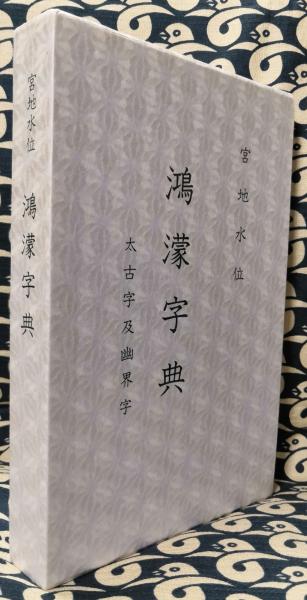 宮地水位
鴻濛字典
太古字及幽界字
宮地水位　鴻濛字典